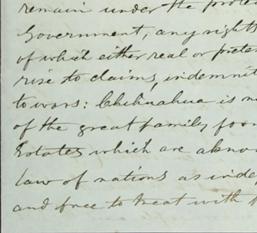 remain under the prote
Government, any right
of which either real or preten
rise to claims, indemnit
towars: Chihuahua is n
of the great family for
States which are abno
law of nations as inde
and free to treat with